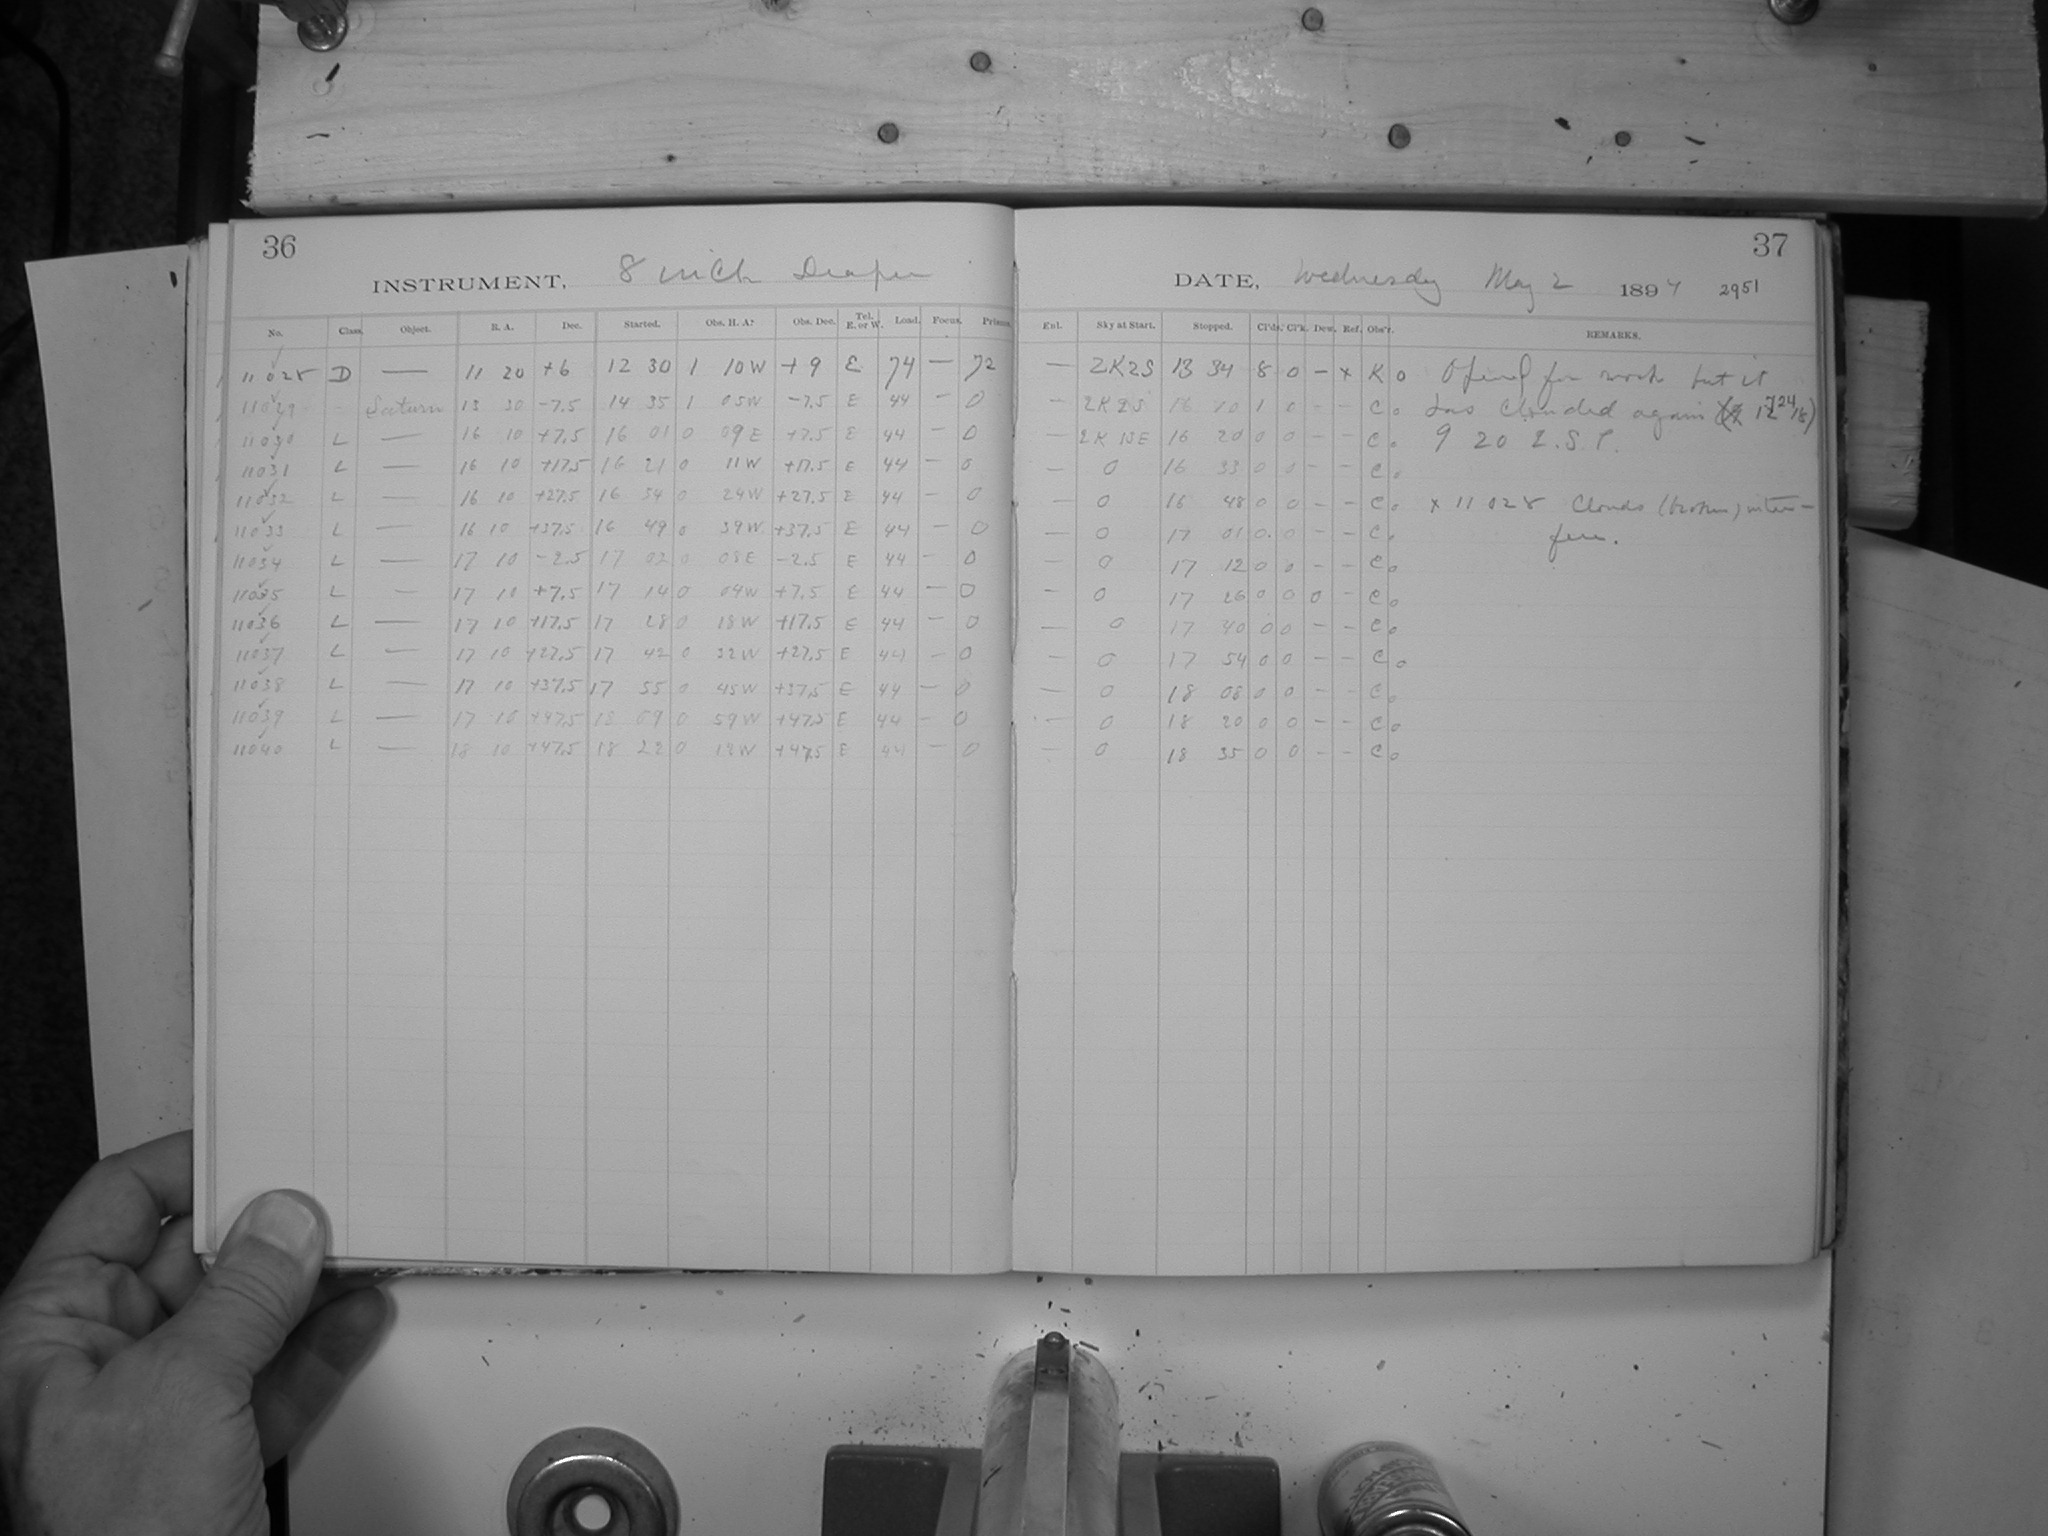 36
INSTRUMENT, 8 inch Draper
No. Class. Object. R. A. Dec. Started. Obs. H. A. Obs. Dec. Tel. E. or W. Load. Focus. Prisms.
11028 D — 11 20 +6 12 30 1 10W +9 E 74 — 72
11029 - Saturn 13 30 -7.5 14 35 1 05W -7.5 E 44 — 0
11030 L — 16 10 +7.5 16 01 0 09E +7.5 E 44 — 0
11031 L — 16 10 +17.5 16 21 0 11W +17.5 E 44 — 0
11032 L — 16 10 +27.5 16 34 0 24W +27.5 E 44 — 0
11033 L — 16 10 +37.5 16 49 0 39W +37.5 E 44 — 0
11034 L — 17 10 -2.5 17 02 0 08E -2.5 E 44 — 0
11035 L — 17 10 +7.5 17 14 0 04W +7.5 E 44 — 0
11036 L — 17 10 +17.5 17 28 0 18W +17.5 E 44 — 0
11037 L — 17 10 +27.5 17 42 0 32W +27.5 E 44 — 0
11038 L — 17 10 +37.5 17 55 0 45W +37.5 E 44 — 0
11039 L — 17 10 +47.5 18 09 0 59W +47.5 E 44 — 0
11040 L — 18 10 +47.5 18 22 0 12W +47.5 E 44 — 0
37
DATE, Wednesday May 2 1894 2951
Enl. Sky at Start. Stopped. Cl'ds. Cl'k. Dew. Ref. Obs'r. REMARKS.
— 2K2S 13 34 8 0 – x K 0 Opened for work but it
— 2K2S 16 10 1 0 – – C 0 has clouded again
— 2K 13E 16 20 0 0 – – C 0 9 20 E.S.T.
— 0 16 33 0 0 – – C 0
— 0 16 48 0 0 – – C 0 x 11028 Clouds (broken) inter-
— 0 17 01 0 0 – – C 0 fere.
— 0 17 12 0 0 – – C 0
— 0 17 26 0 0 0 – C 0
— 0 17 40 0 0 – – C 0
— 0 17 54 0 0 – – C 0
— 0 18 08 0 0 – – C 0
— 0 18 20 0 0 – – C 0
— 0 18 35 0 0 – – C 0